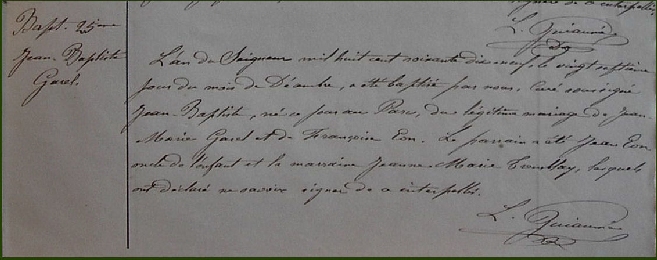 de ce interpellés.
L. Guiaumé
Bapt. 25ème
Jean Baptiste
Garel.
L'an du Seigneur mil huit cent soixante dix neuf, le vingt septième
jour du mois de Décembre, a été baptisé par nous, Curé soussigné
Jean Baptiste, né ce jour au Parc, du légitime mariage de Jean
Marie Garel et de Françoise Eon. Le parrain a été Jean Eon
oncle de l'enfant et la marraine Jeanne Marie Tremblay, lesquels
ont déclaré ne savoir signer de ce interpellés.
L. Guiaumé